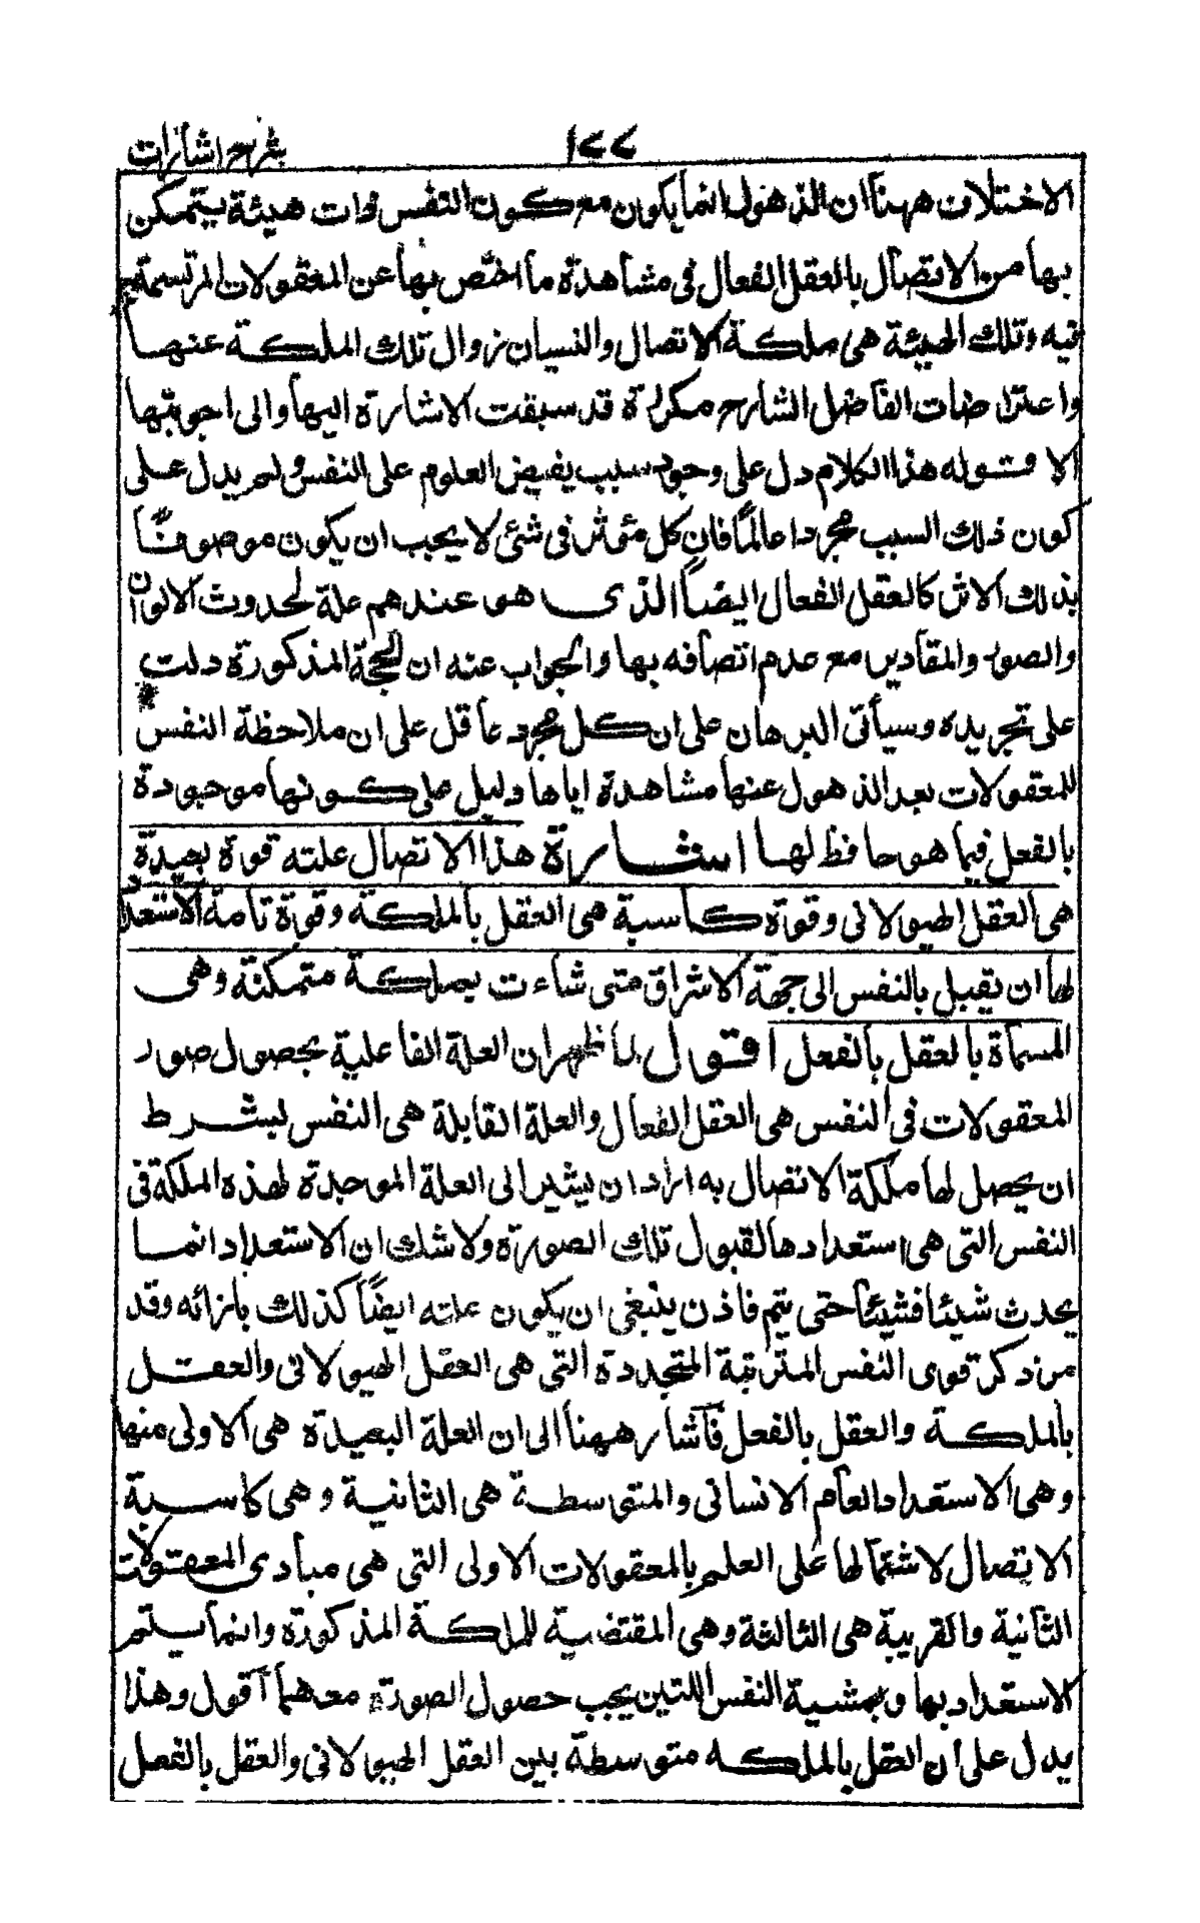 شرح اشارات
١٧٧
الاختلاف ههنا ان الذهول انما يكون مع كون النفس ذات هيئة يتمكن
بها من الاتصال بالعقل الفعال فى مشاهدة ما اختص بها عن المعقولات المرتسمة
فيه وتلك الهيئة هى ملكة الاتصال والنسيان زوال تلك الملكة عنها
واعتراضات الفاضل الشارح مكررة قد سبقت الاشارة اليها والى اجوبتها
الا قوله هذا الكلام دل على وجود سبب يفيض العلوم على النفس ولم يدل على
كون ذلك السبب مجردا عالما فان كل مؤثر فى شئ لا يجب ان يكون موصوفا
بذلك الاثر كالعقل الفعال ايضا الذى هو عندهم علة لحدوث الالوان
والصور والمقادير مع عدم اتصافه بها والجواب عنه ان الحجة المذكورة دلت
على تجريده وسيأتى البرهان على ان كل مجرد عاقل على ان ملاحظة النفس
للمعقولات بعد الذهول عنها مشاهدة اياها دليل على كونها موجودة
بالفعل فيما هو حافظ لها اشارة هذا الاتصال علته قوة بعيدة
هى العقل الهيولانى وقوة كاسبة هى العقل بالملكة وقوة تامة الاستعداد
لها ان يقبل بالنفس الى جهة الاشراق متى شاءت بملكة متمكنة وهى
المسماة بالعقل بالفعل اقول لما ظهر ان العلة الفاعلية بحصول صور
المعقولات فى النفس هى العقل الفعال والعلة القابلة هى النفس بشرط
ان يحصل لها ملكة الاتصال به اراد ان يشير الى العلة الموجدة لهذه الملكة فى
النفس التى هى استعدادها لقبول تلك الصورة ولا شك ان الاستعداد انما
يحدث شيئا فشيئا حتى يتم فاذن ينبغى ان يكون علته ايضا كذلك بازائه وقد
مر ذكر قوى النفس المترتبة المتجددة التى هى العقل الهيولانى والعقل
بالملكة والعقل بالفعل فأشار ههنا الى ان العلة البعيدة هى الاولى منها
وهى الاستعداد العام الانسانى والمتوسطة هى الثانية وهى كاسبة
الاتصال لاشتمالها على العلم بالمعقولات الاولى التى هى مبادى المعقولات
الثانية والقريبة هى الثالثة وهى المقتضية للملكة المذكورة وانما يتم
الاستعداد بها وبمشية النفس اللتين يجب حصول الصورة معهما اقول وهذا
يدل على ان العقل بالملكه متوسطة بين العقل الهيولانى والعقل بالفعل